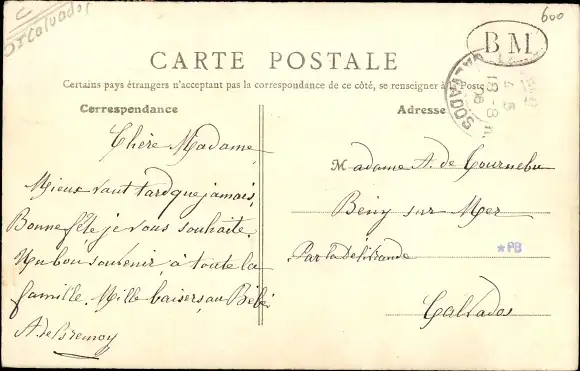 Calvados
600
B M
CARTE POSTALE
Certains pays étrangers n'acceptant pas la correspondance de ce côté, se renseigner à la Poste
Correspondance
Adresse
18-8
Chère Madame
Mieux vaut tard que jamais,
Bonne fête je vous souhaite.
Un bon souvenir à toute la
famille. Mille baisers au Bébé
A. de
Madame A. de Tournebu
Beny sur Mer
Par la Délivrande
*PB
Calvados